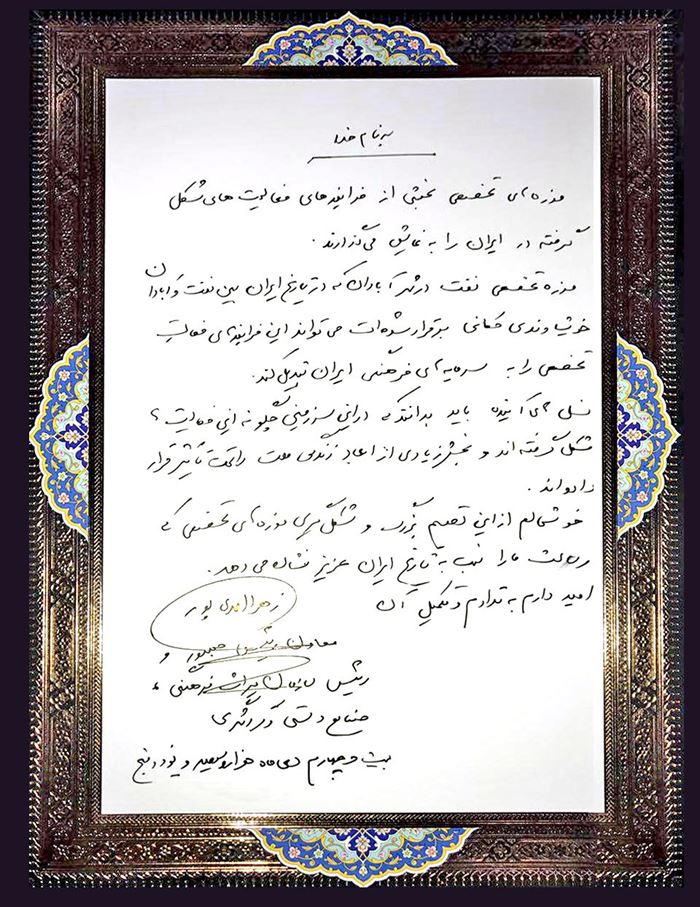 به نام خدا
موزه‌های تخصصی بخشی از فرایندهای فعالیت های شکل
گرفته در ایران را به نمایش می‌گذارند.
موزه تخصصی نفت در شهر آبادان که در تاریخ ایران بین نفت و آبادان
خویشاوندی همگانی برقرار شده است می‌تواند این فرایندهای فعالیت
تخصصی را به سرمایه‌ای فرهنگی ایران تبدیل کند.
نسل های آینده باید بدانند که در این سرزمین چگونه این فعالیت ها
شکل گرفته‌اند و بخش زیادی از ابعاد زندگی ملت را تحت تأثیر قرار
داده‌اند.
خوشحالم از این تصمیم بزرگ و شکل گیری موزه‌های تخصصی که
رسالت ما را نسبت به تاریخ ایران عزیز نشان می دهد.
امید دارم به تداوم و تکمیل آن
زهرا احمدی پور
معاون رئیس جمهور و
رئیس سازمان میراث فرهنگی،
صنایع دستی و گردشگری
بیست و چهارم دی ماه هزار و سیصد و نود و پنج